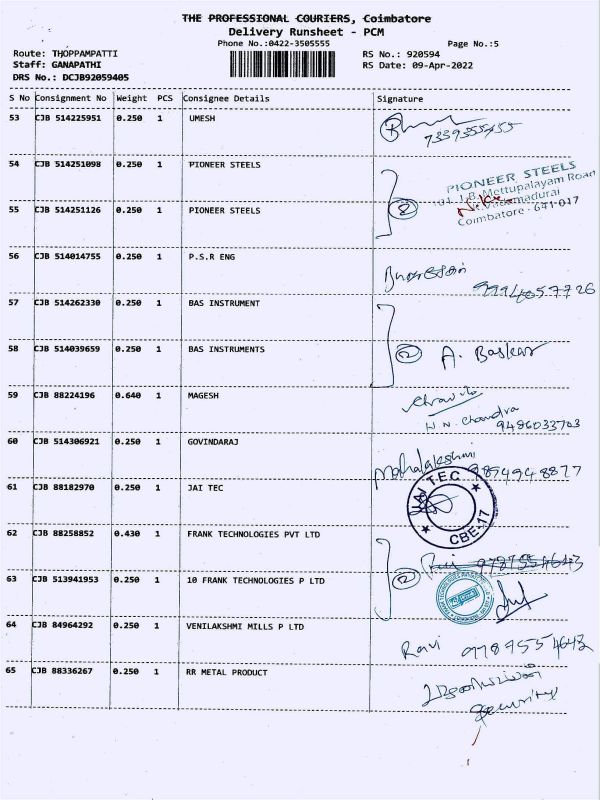 THE PROFESSIONAL COURIERS, Coimbatore
Delivery Runsheet - PCM
Phone No.:0422-3505555
Page No.:5
Route: THOPPAMPATTI
RS No.: 920594
Staff: GANAPATHI
RS Date: 09-Apr-2022
DRS No.: DCJB92059405
S No Consignment No Weight PCS Consignee Details Signature
53 CJB 514225951 0.250 1 UMESH
7339355455
54 CJB 514251098 0.250 1 PIONEER STEELS
PIONEER STEELS
Mettupalayam Road
Coimbatore - 641 017
55 CJB 514251126 0.250 1 PIONEER STEELS
56 CJB 514014755 0.250 1 P.S.R ENG
9994057726
57 CJB 514262330 0.250 1 BAS INSTRUMENT
58 CJB 514039659 0.250 1 BAS INSTRUMENTS
2 A. Baskar
59 CJB 88224196 0.640 1 MAGESH
N.N. Chandra
9486033703
60 CJB 514306921 0.250 1 GOVINDARAJ
Mahalakshmi 9894948877
61 CJB 88182970 0.250 1 JAI TEC
JAI TEC
CBE-17
62 CJB 88258852 0.430 1 FRANK TECHNOLOGIES PVT LTD
2 Ravi 9787554643
63 CJB 513941953 0.250 1 10 FRANK TECHNOLOGIES P LTD
64 CJB 84964292 0.250 1 VENILAKSHMI MILLS P LTD
Ravi 9787554643
65 CJB 88336267 0.250 1 RR METAL PRODUCT
Security